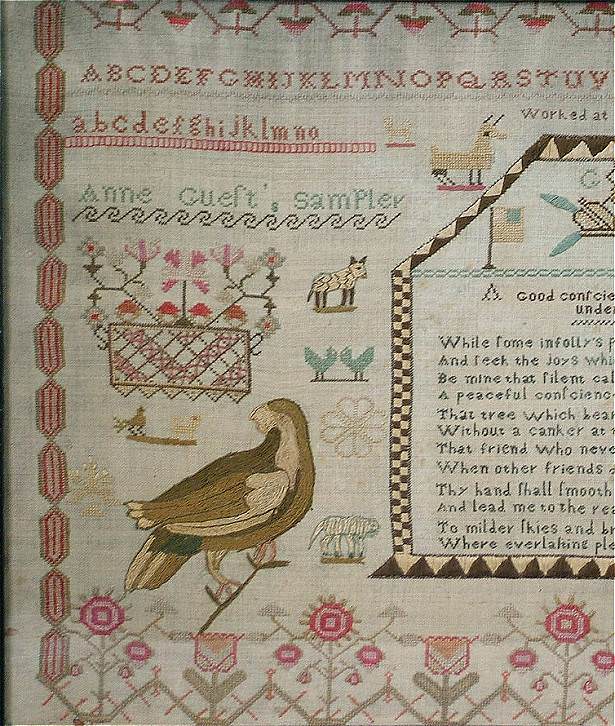 ABCDEFGHIJKLMNOPQRSTUV
abcdefghijklmno
Worked at
Anne Gueſt's Sampler
A Good conſcie
under
While ſome in folly's p
And ſeek the Joys whi
Be mine that ſilent cal
A peaceful conſcience
That tree which bear
Without a canker at
That friend who neve
When other friends
Thy hand ſhall ſmooth
And lead me to the rea
To milder ſkies and br
Where everlaſting ple